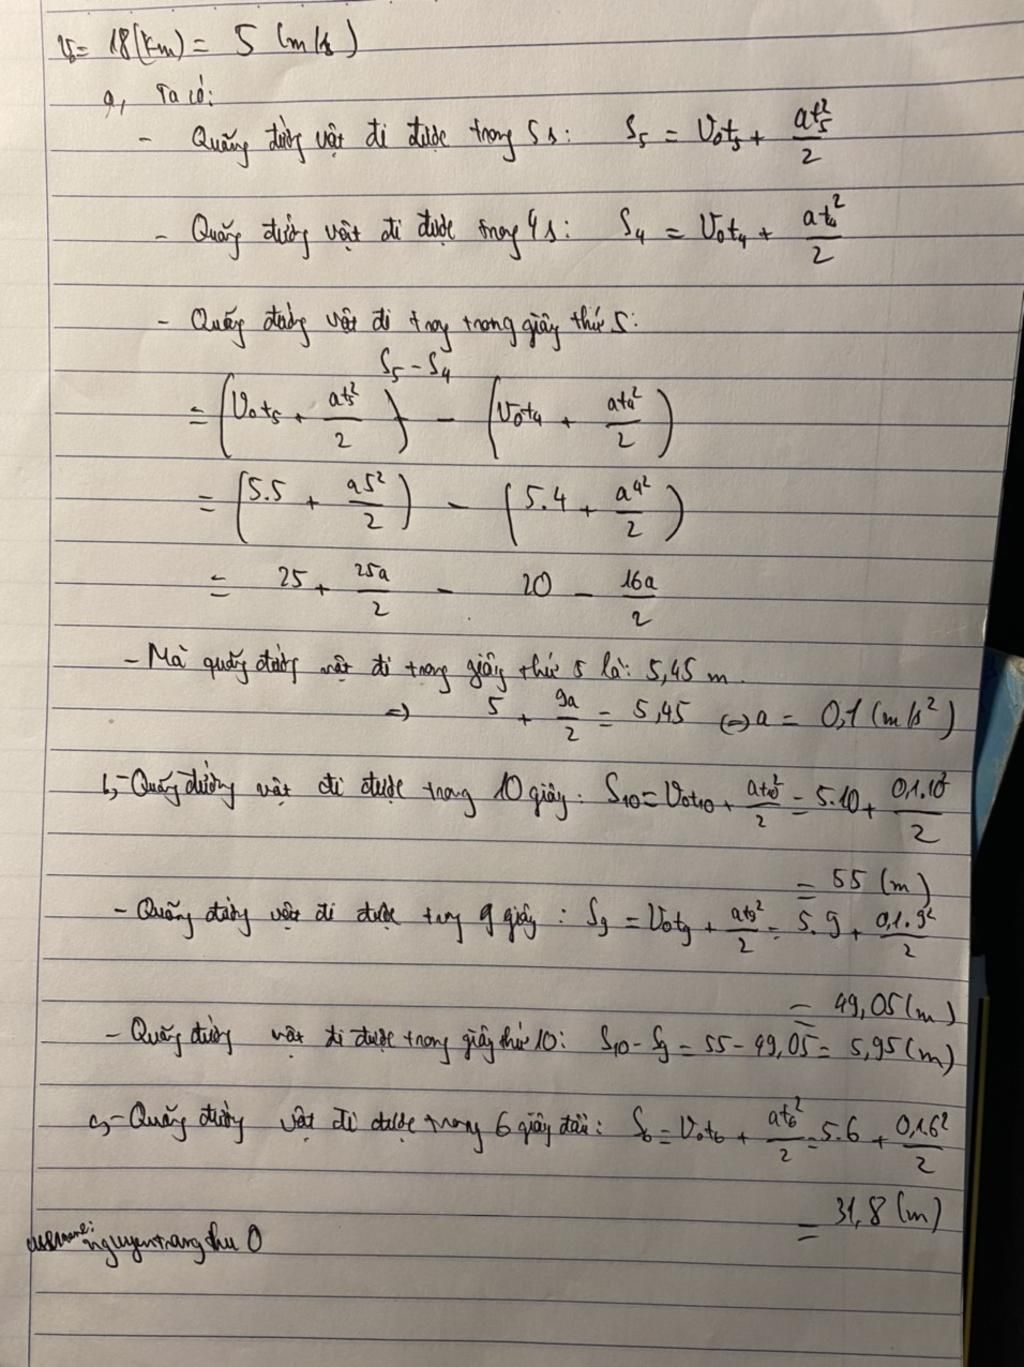 v₀= 18(km) = 5 (m/s)
a, Ta có:
- Quãng đường vật đi được trong 5s: S₅ = V₀t₅ + at₅²/2
- Quãng đường vật đi được trong 4s: S₄ = V₀t₄ + at₄²/2
- Quãng đường vật đi trong trong giây thứ 5:
S₅ - S₄
= (V₀t₅ + at₅²/2) - (V₀t₄ + at₄²/2)
= (5.5 + a5²/2) - (5.4 + a4²/2)
= 25 + 25a/2 - 20 - 16a/2
- Mà quãng đường vật đi trong giây thứ 5 là: 5,45 m.
=> 5 + 9a/2 = 5,45 <=> a = 0,1 (m/s²)
b, - Quãng đường vật đi được trong 10 giây: S₁₀ = V₀t₁₀ + at₁₀²/2 = 5.10 + 0,1.10²/2
= 55 (m)
- Quãng đường vật đi được trong 9 giây: S₉ = V₀t₉ + at₉²/2 = 5.9 + 0,1.9²/2
= 49,05 (m)
- Quãng đường vật đi được trong giây thứ 10: S₁₀ - S₉ = 55 - 49,05 = 5,95 (m)
c, - Quãng đường vật đi được trong 6 giây đầu: S₆ = V₀t₆ + at₆²/2 = 5.6 + 0,1.6²/2
= 31,8 (m)
username: nguyentrangthu0